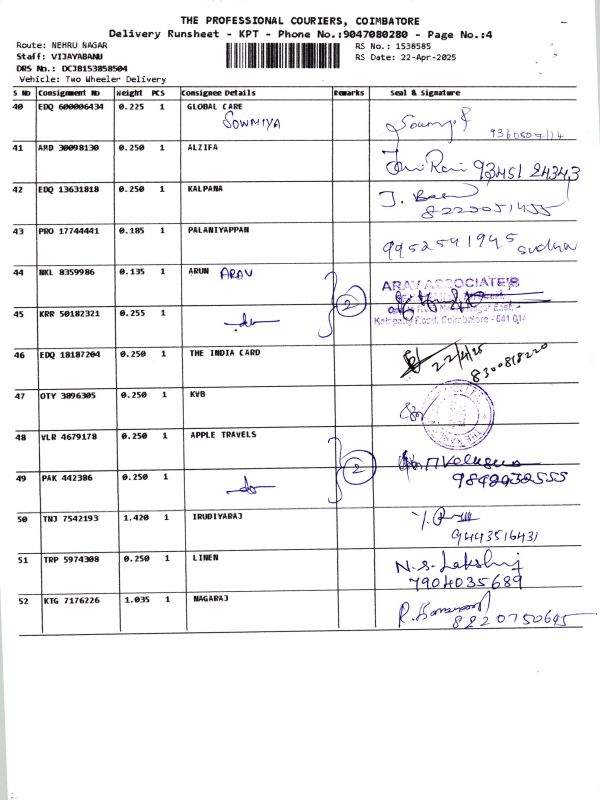 THE PROFESSIONAL COURIERS, COIMBATORE
Delivery Runsheet - KPT - Phone No.:9047080280 - Page No.:4
Route: NEHRU NAGAR RS No.: 1538585
Staff: VIJAYABANU RS Date: 22-Apr-2025
DRS No.: DCJB153858504
Vehicle: Two Wheeler Delivery
S No Consignment No Weight PCS Consignee Details Remarks Seal & Signature
40 EDQ 600006434 0.225 1 GLOBAL CARE
SOWMIYA
41 AMD 30098130 0.250 1 ALZIFA
93451 24343
42 EDQ 13631818 0.250 1 KALPANA
8220051455
43 PRO 17744441 0.185 1 PALANIYAPPAN
9952541945
44 NKL 8359986 0.135 1 ARUN ARAV
ARAV ASSOCIATES
2
45 KRR 50182321 0.255 1
do
Road, Coimbatore - 641 014
46 EDQ 18187204 0.250 1 THE INDIA CARD
22/4/25
8300818220
47 OTY 3896305 0.250 1 KVB
48 VLR 4679178 0.250 1 APPLE TRAVELS
2
49 PAK 442386 0.250 1
do
50 TNJ 7542193 1.420 1 IRUDIYARAJ
9443516431
51 TRP 5974308 0.250 1 LINEN
N.S. Lakshmi
7904035689
52 KTG 7176226 1.035 1 NAGARAJ
8220750645